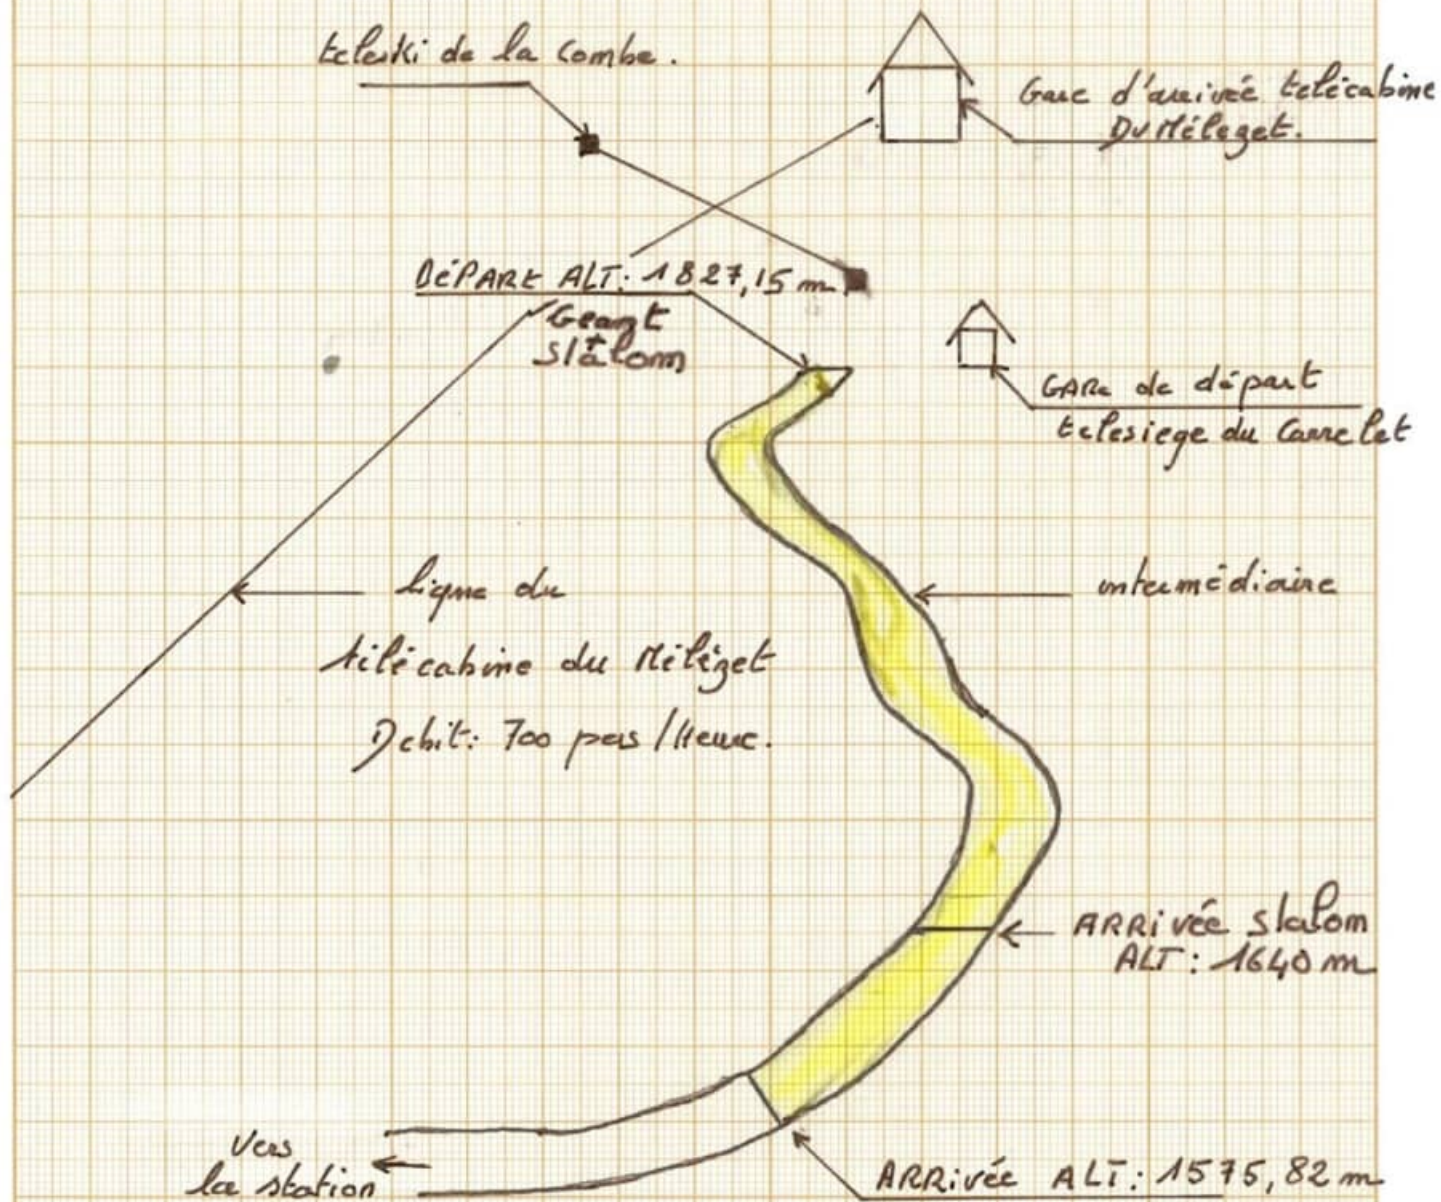 teleski de la Combe.
Gare d'arrivée telécabine
Du Méleget.
DÉPART ALT: 1827,15 m
Geant
+
slalom
GARe de départ
telesiege du Carrelet
ligne du
télécabine du Mélézet
Debit: 700 pers/Heure.
intermédiaire
ARRivée slalom
ALT: 1640 m
Vers
la station
ARRivée ALT: 1575,82 m